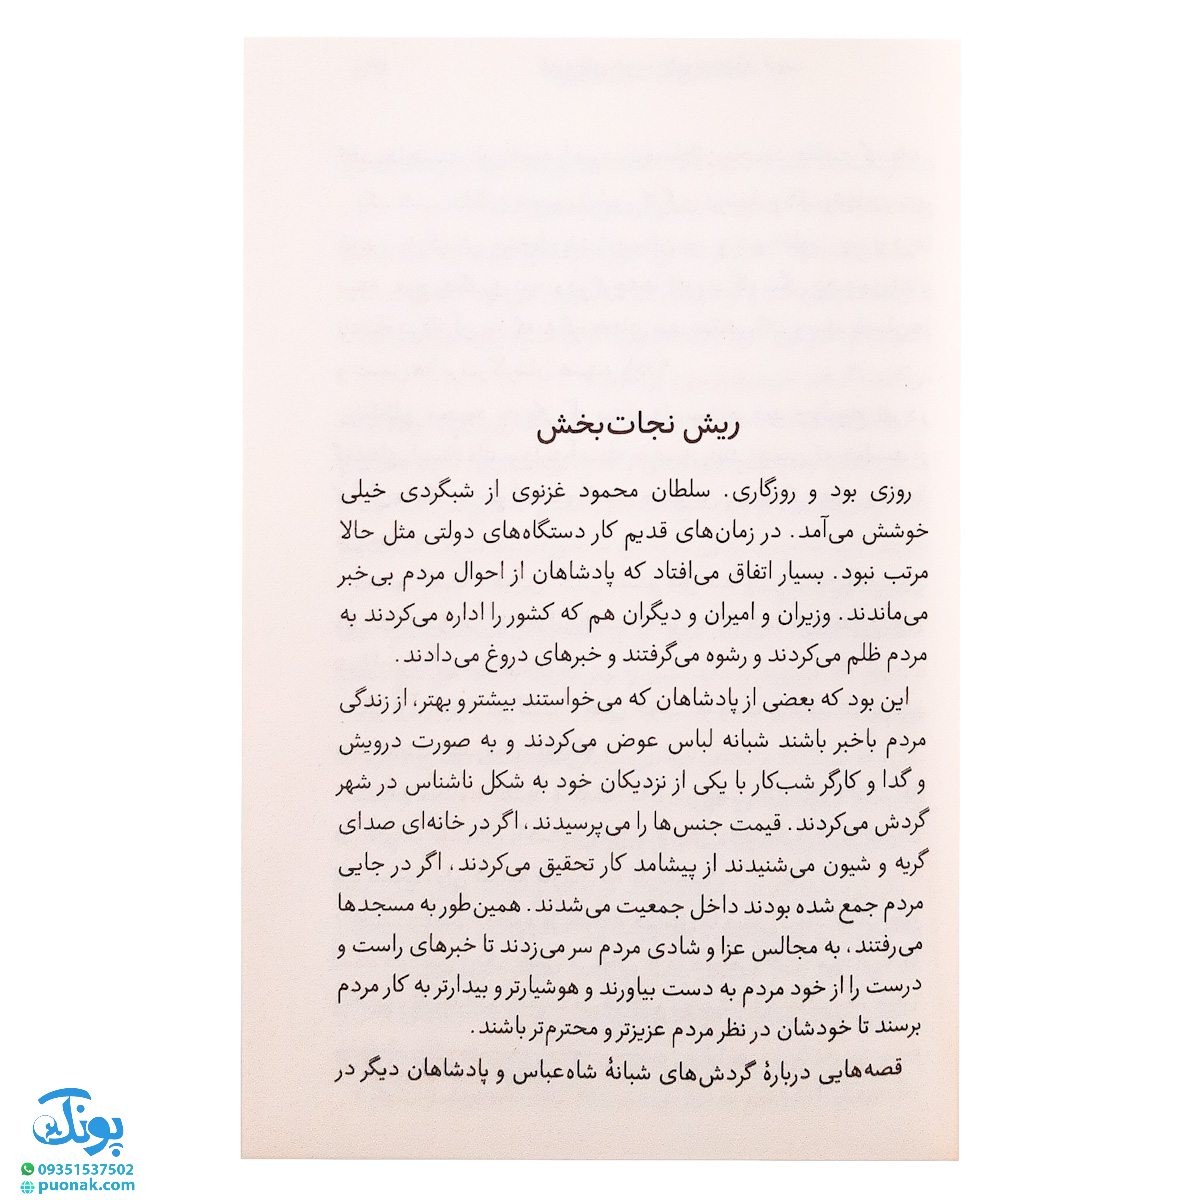 ریش نجات‌بخش
روزی بود و روزگاری. سلطان محمود غزنوی از شبگردی خیلی
خوشش می‌آمد. در زمان‌های قدیم کار دستگاه‌های دولتی مثل حالا
مرتب نبود. بسیار اتفاق می‌افتاد که پادشاهان از احوال مردم بی‌خبر
می‌ماندند. وزیران و امیران و دیگران هم که کشور را اداره می‌کردند به
مردم ظلم می‌کردند و رشوه می‌گرفتند و خبرهای دروغ می‌دادند.
این بود که بعضی از پادشاهان که می‌خواستند بیشتر و بهتر، از زندگی
مردم باخبر باشند شبانه لباس عوض می‌کردند و به صورت درویش
و گدا و کارگر شب‌کار با یکی از نزدیکان خود به شکل ناشناس در شهر
گردش می‌کردند. قیمت جنس‌ها را می‌پرسیدند، اگر در خانه‌ای صدای
گریه و شیون می‌شنیدند از پیشامد کار تحقیق می‌کردند، اگر در جایی
مردم جمع شده بودند داخل جمعیت می‌شدند. همین‌طور به مسجدها
می‌رفتند، به مجالس عزا و شادی مردم سر می‌زدند تا خبرهای راست و
درست را از خود مردم به دست بیاورند و هوشیارتر و بیدارتر به کار مردم
برسند تا خودشان در نظر مردم عزیزتر و محترم‌تر باشند.
قصه‌هایی دربارهٔ گردش‌های شبانهٔ شاه‌عباس و پادشاهان دیگر در
پونک
09351537502
puonak.com